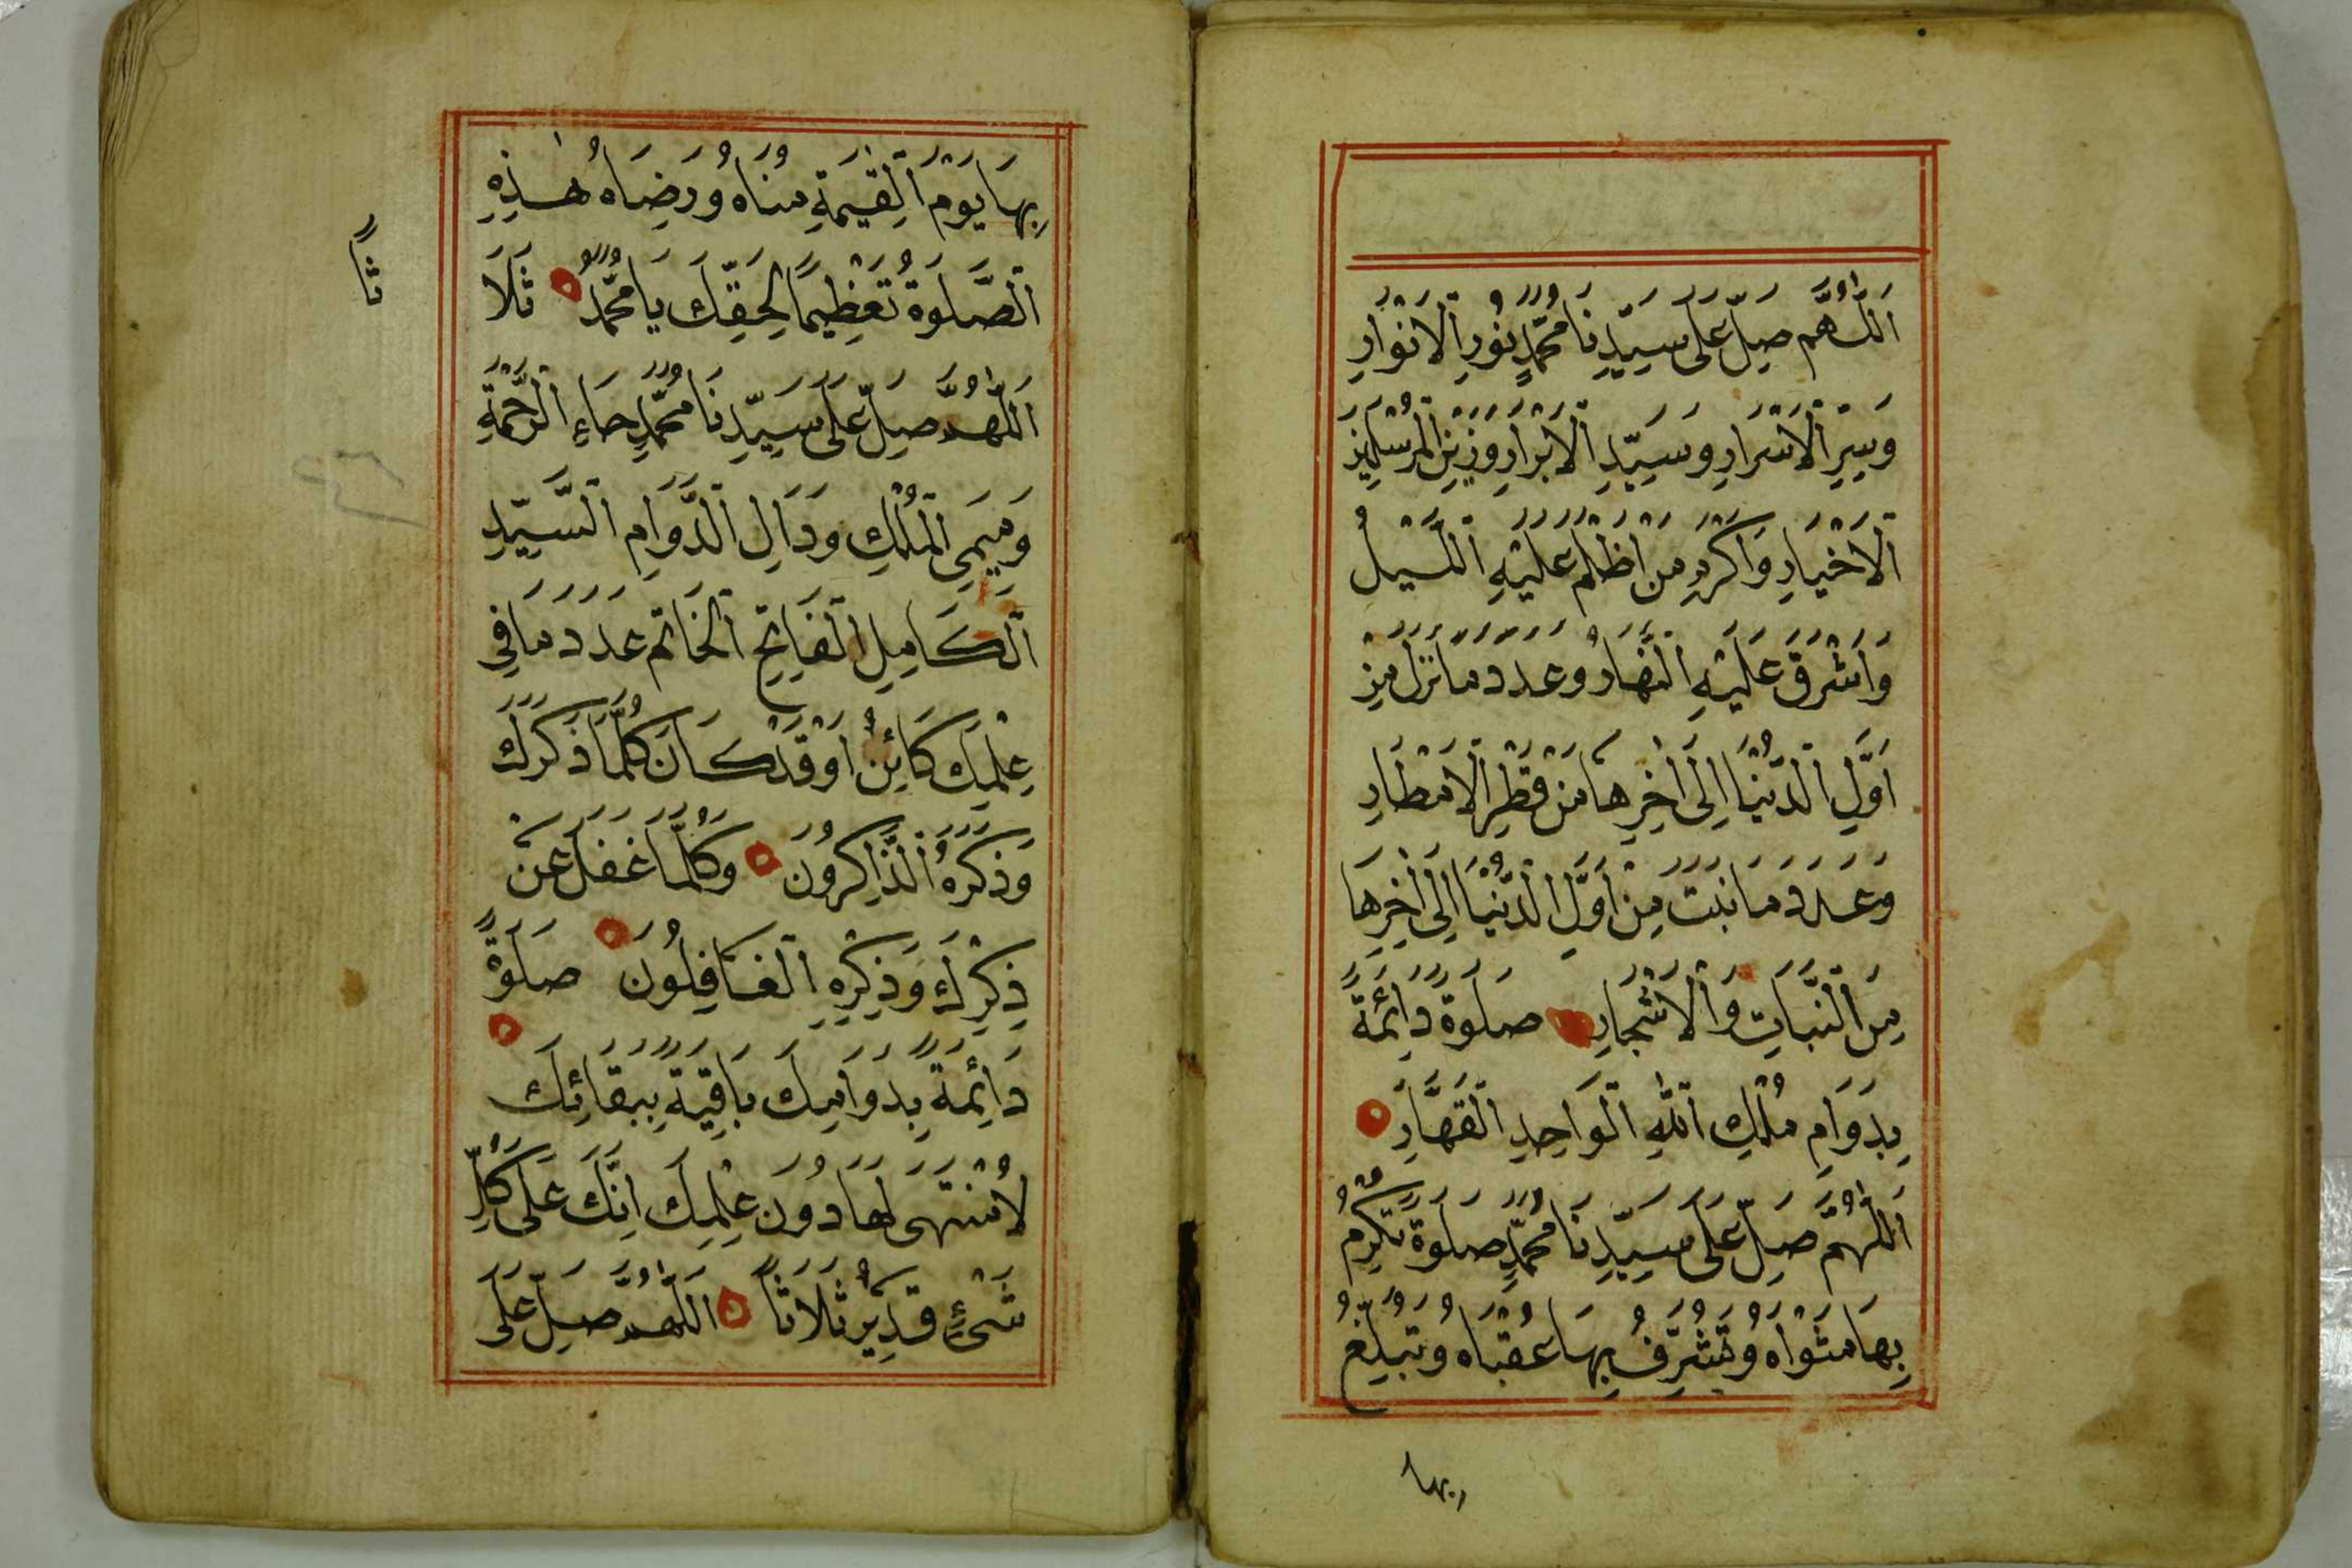 اَللّٰهُمَّ صَلِّ عَلَى سَيِّدِنَا مُحَمَّدٍ نُورِ الْاَنْوَارِ
وَسِرِّ الْاَسْرَارِ وَسَيِّدِ الْاَبْرَارِ وَزَيْنِ الْمُرْسَلِينَ
الْاَخْيَارِ وَاَكْرَمِ مَنْ اَظْلَمَ عَلَيْهِ الَّيْلُ
وَاَشْرَقَ عَلَيْهِ النَّهَارُ وَعَدَدَ مَا نَزَلَ مِنْ
اَوَّلِ الدُّنْيَا اِلَى اٰخِرِهَا مِنْ قَطْرِ الْاَمْطَارِ
وَعَدَدَ مَا نَبَتَ مِنْ اَوَّلِ الدُّنْيَا اِلَى اٰخِرِهَا
مِنَ النَّبَاتِ وَالْاَشْجَارِ صَلَوةً دَائِمَةً
بِدَوَامِ مُلْكِ اللّٰهِ الْوَاحِدِ الْقَهَّارِ
اَللّٰهُمَّ صَلِّ عَلَى سَيِّدِنَا مُحَمَّدٍ صَلَوةً تُكْرِمُ
بِهَا مَثْوَاهُ وَتُشَرِّفُ بِهَا عُقْبَاهُ وَتُبَلِّغُ
بها
بِهَا يَوْمَ الْقِيٰمَةِ مُنَاهُ وَرِضَاهُ هٰذِهِ
الصَّلَوةُ تَعْظِيمًا لِحَقِّكَ يَا مُحَمَّدُ ثَلَا
ثاً
اَللّٰهُمَّ صَلِّ عَلَى سَيِّدِنَا مُحَمَّدٍ حَاءِ الرَّحْمَةِ
وَمِيمَيِ الْمُلْكِ وَدَالِ الدَّوَامِ السَّيِّدِ
الْكَامِلِ الْفَاتِحِ الْخَاتَمِ عَدَدَ مَا فِي
عِلْمِكَ كَائِنٌ اَوْ قَدْ كَانَ كُلَّمَا ذَكَرَكَ
وَذَكَرَهُ الذَّاكِرُونَ وَكُلَّمَا غَفَلَ عَنْ
ذِكْرِكَ وَذِكْرِهِ الْغَافِلُونَ صَلَوةً
دَائِمَةً بِدَوَامِكَ بَاقِيَةً بِبَقَائِكَ
لَا مُنْتَهَى لَهَا دُونَ عِلْمِكَ اِنَّكَ عَلَى كُلِّ
شَيْءٍ قَدِيرٌ ثَلَاثًا اَللّٰهُمَّ صَلِّ عَلَى